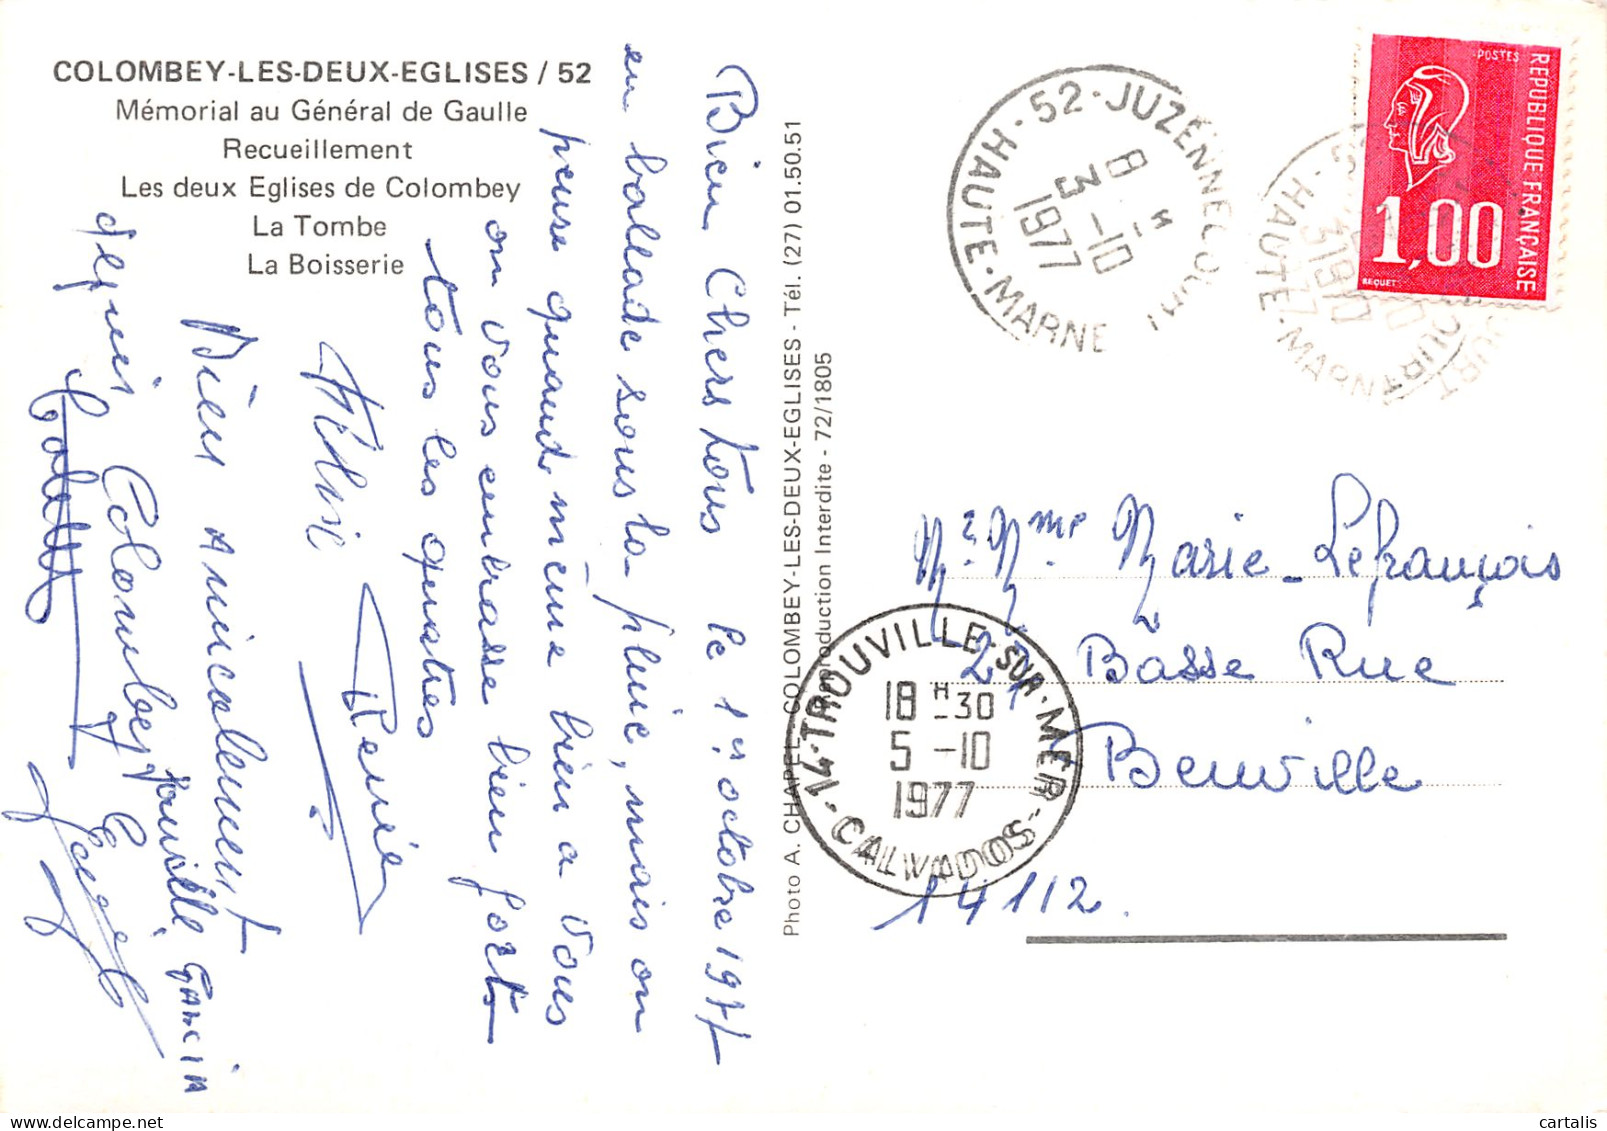 COLOMBEY-LES-DEUX-EGLISES / 52
Mémorial au Général de Gaulle
Recueillement
Les deux Eglises de Colombey
La Tombe
La Boisserie
Bien Chers tous le 1er octobre 1977
en ballade sous la pluie, mais on
pense quand même bien a vous
on vous embrasse bien forts
tous les quatres
René
Bien Amicalement
depuis Colombey
Famille GARCIA
Photo A. CHAPEL COLOMBEY-LES-DEUX-EGLISES - Tél. (27) 01.50.51
Reproduction Interdite - 72/1805
52-JUZENNECOURT
8 H
3-10
1977
HAUTE-MARNE
POSTES
REPUBLIQUE FRANÇAISE
1,00
BEQUET
HAUTE-MARNE
14-TROUVILLE-SUR-MER
18H30
5-10
1977
CALVADOS
Mr. Mme Marie-Lefrançois
27 Basse Rue
Beuville
14112.
cartalis
www.delcampe.net